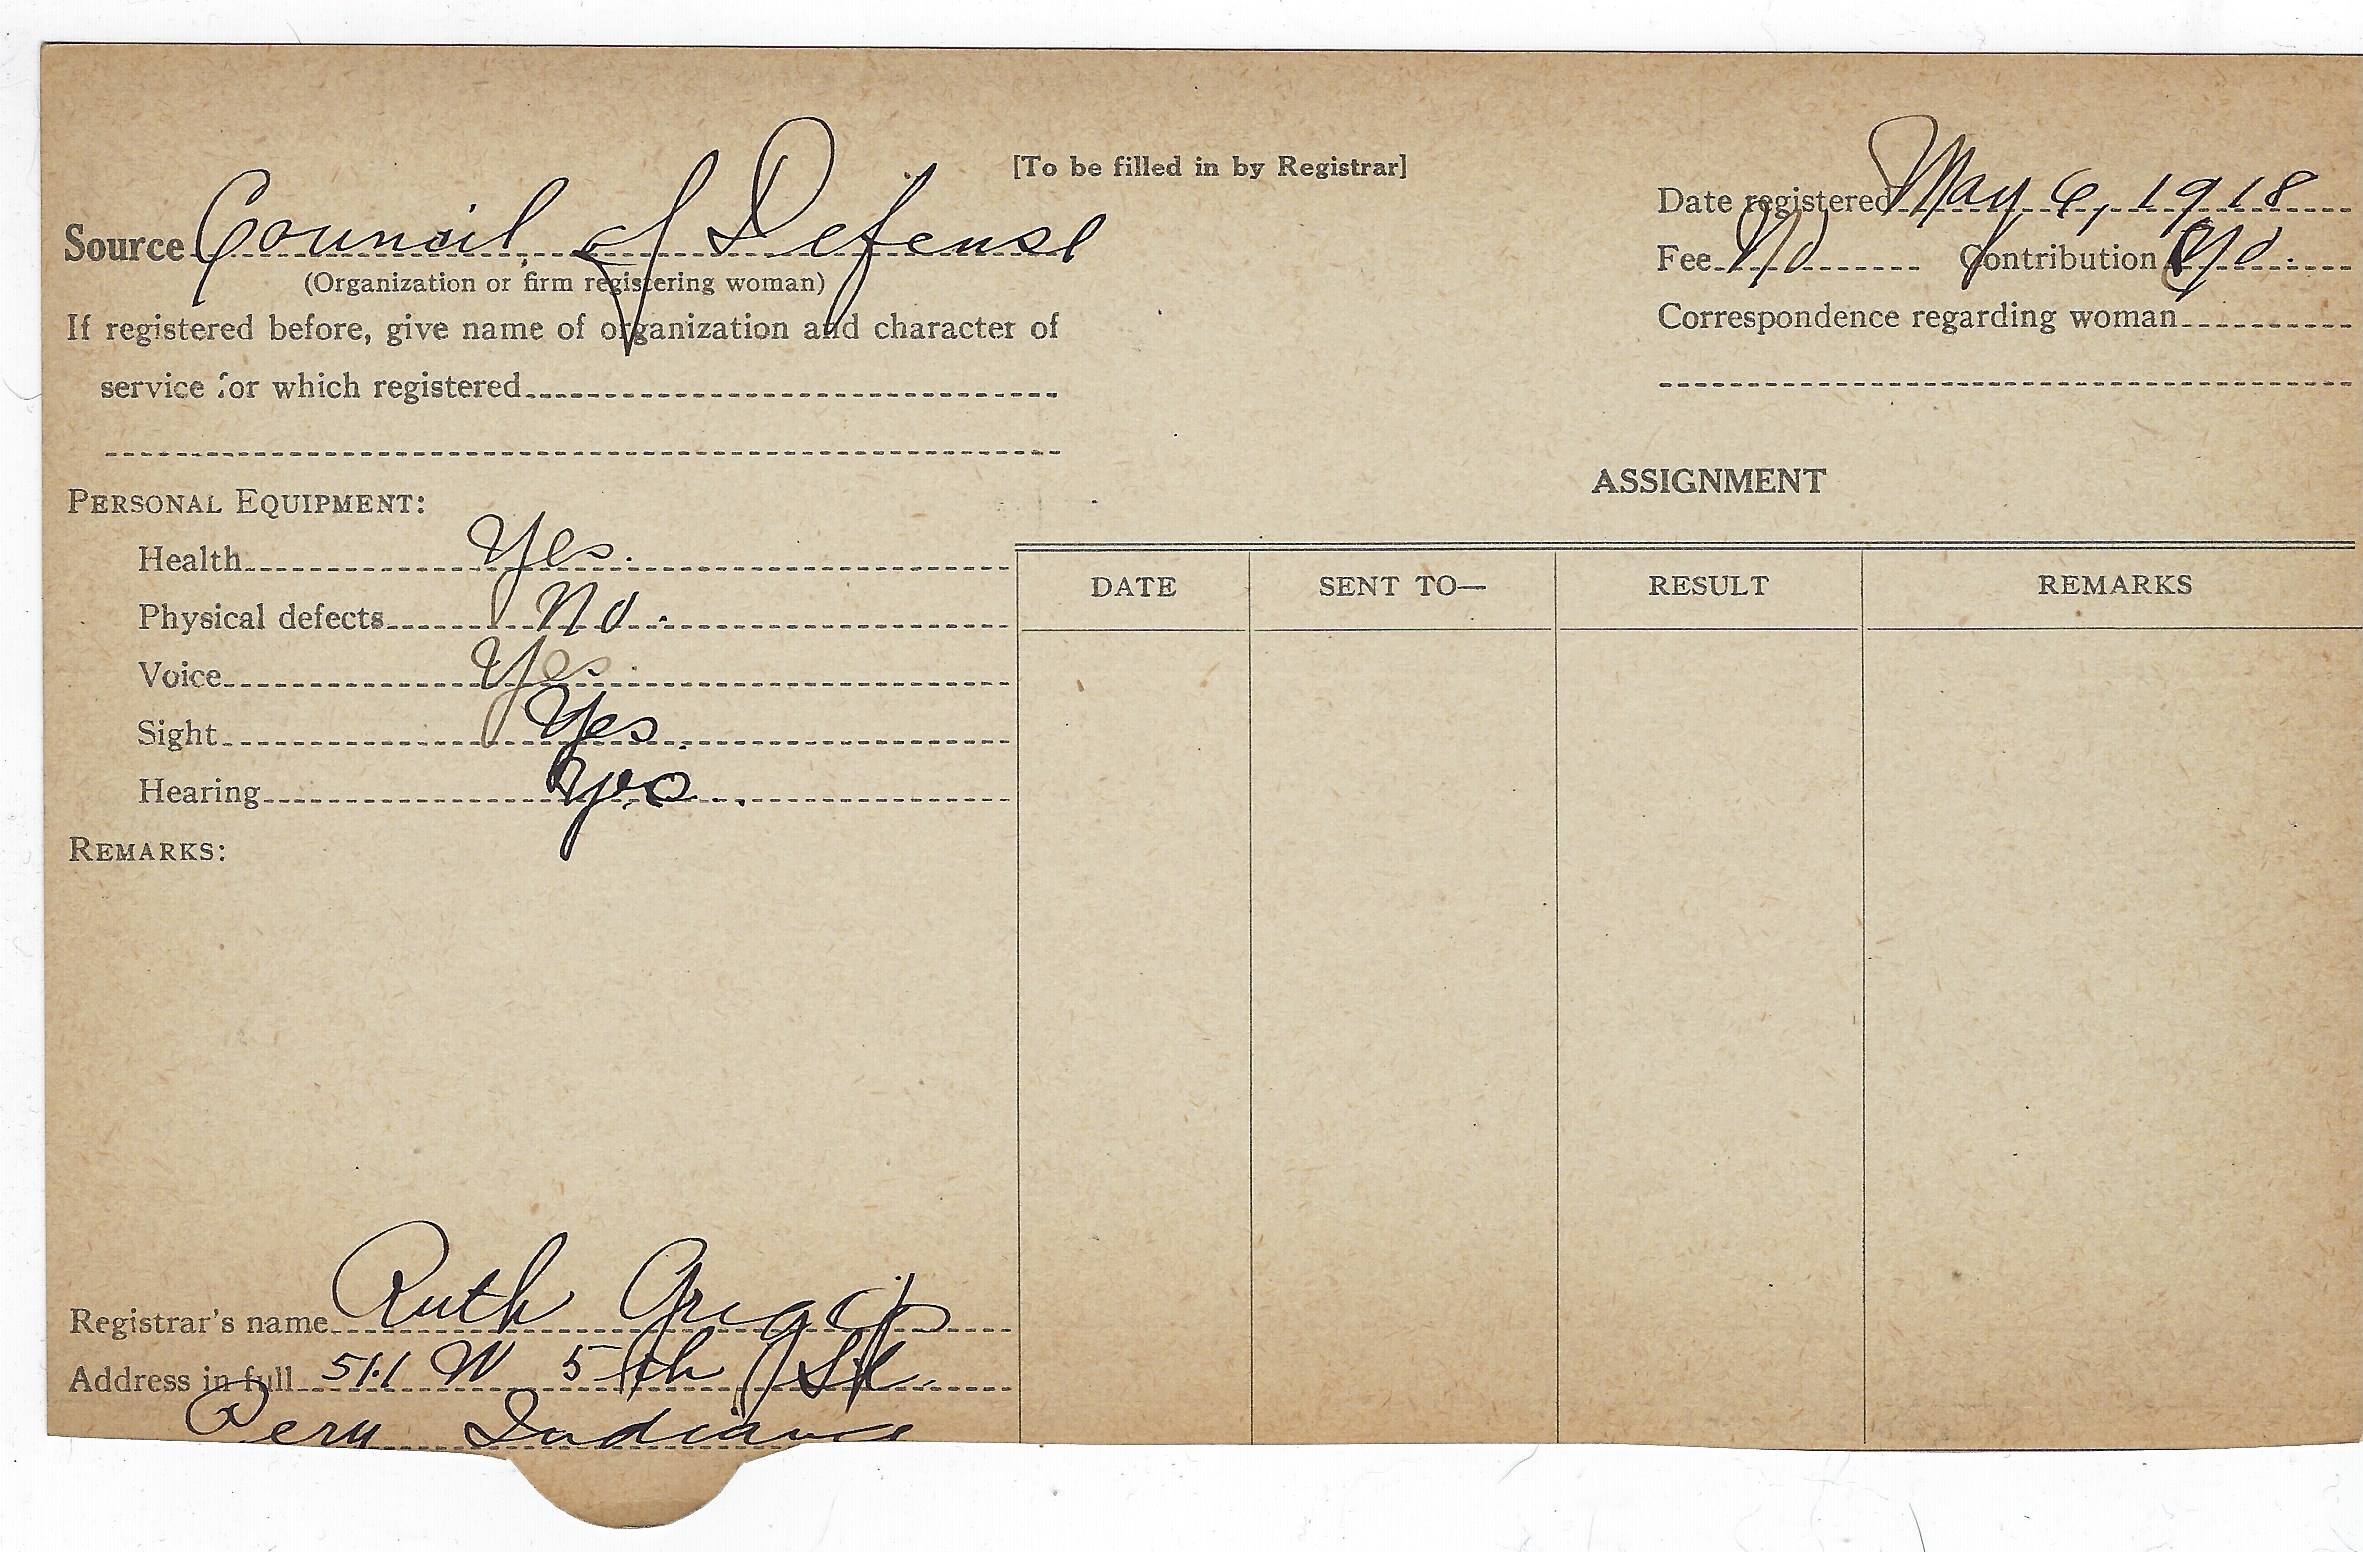 [To be filled in by Registrar]
Source Council of Defense
(Organization or firm registering woman)
If registered before, give name of organization and character of
service for which registered
Date registered May 6, 1918
Fee No Contribution No.
Correspondence regarding woman
PERSONAL EQUIPMENT:
Health Yes.
Physical defects No.
Voice Yes.
Sight Yes.
Hearing Yes.
REMARKS:
ASSIGNMENT
DATE SENT TO— RESULT REMARKS
Registrar's name Ruth Grigg
Address in full 511 W 5th St.
Peru Indiana